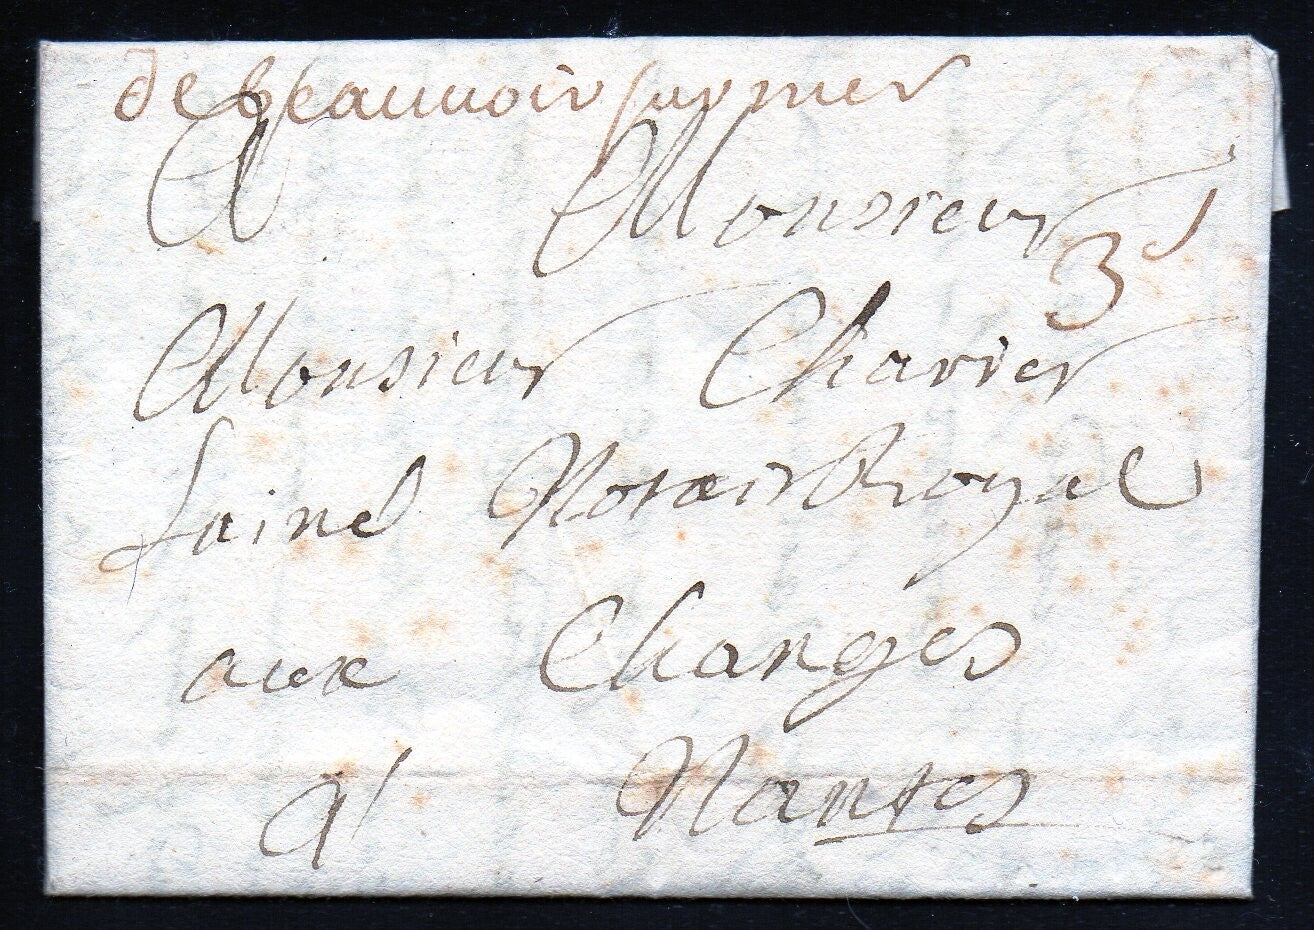 de beauuoir sur mer
A Monsieur
3 s
Monsieur Charier
lainé Notair Royal
aux Changes
a Nantes